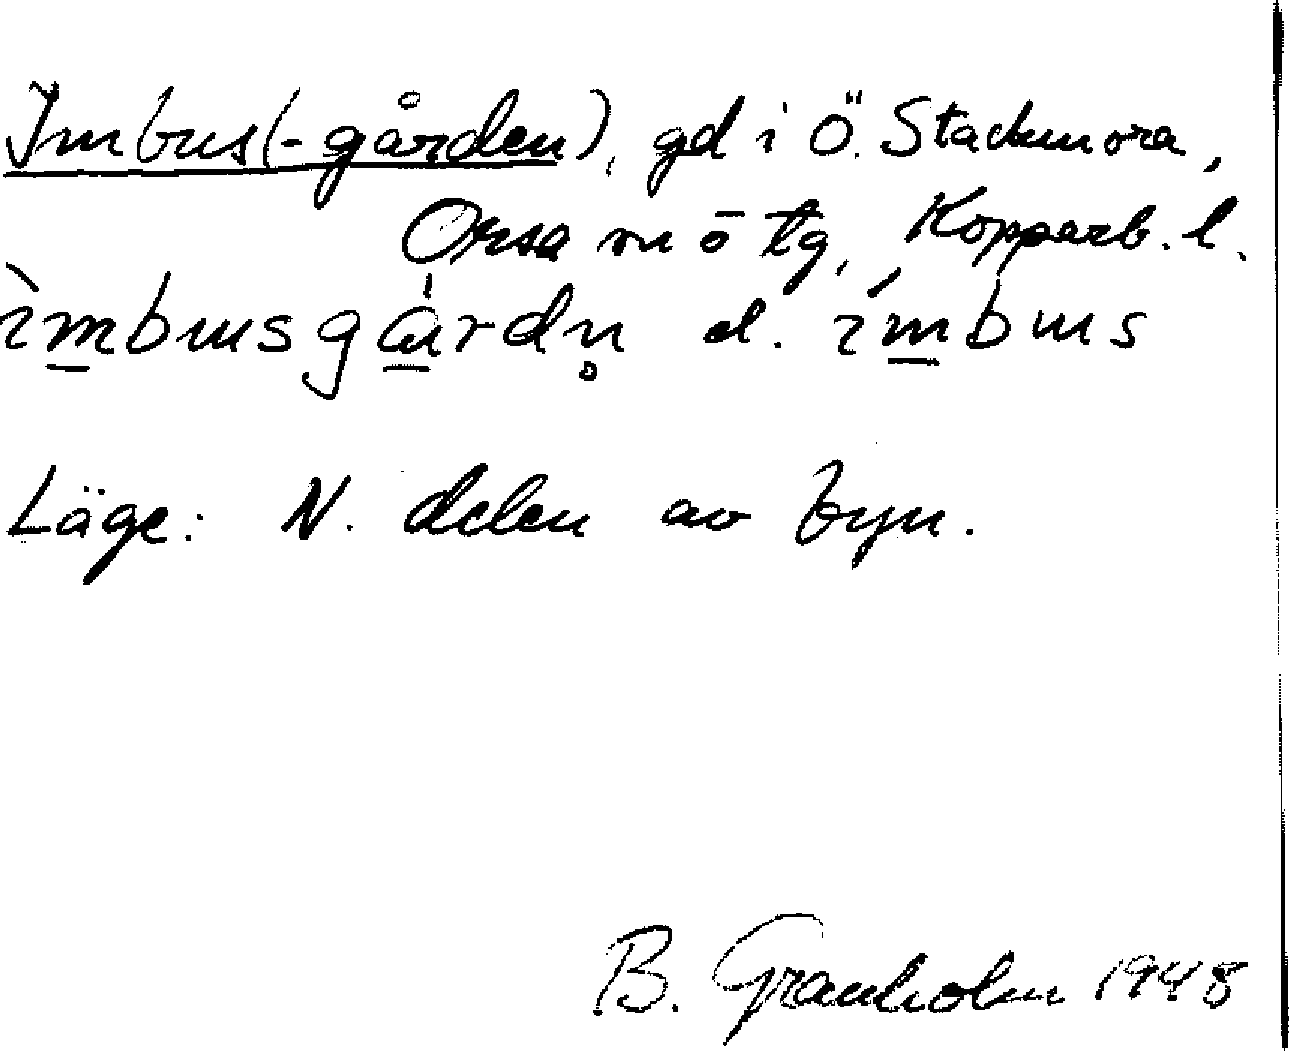 Imbus(-gården), gd i Ö. Stackmora,
Orsa sn ö tg, Kopparb. l.
ìmbusgárdn̥ el. ímbus
Läge: N. delen av byn.
B. Granholm 1948